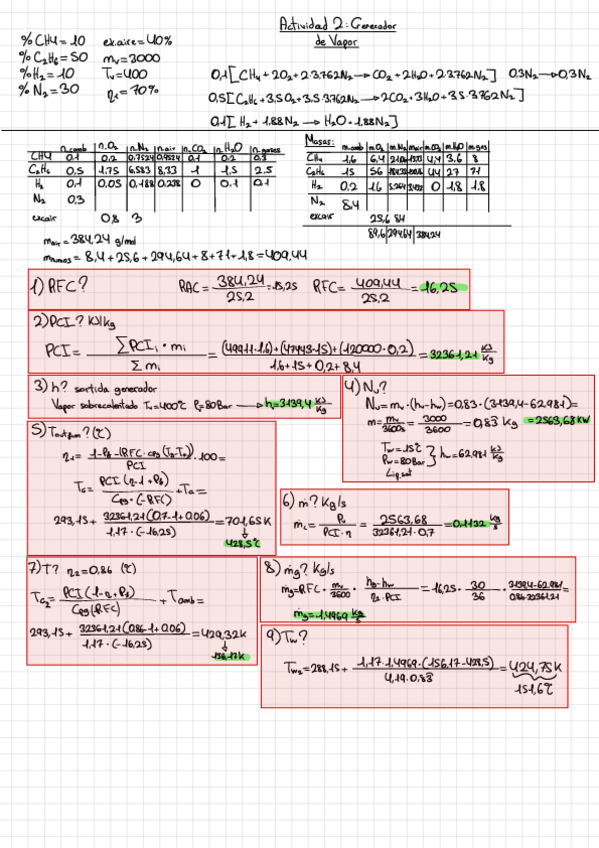 Actividad 2: Generador
de Vapor
% CH4 = 10   ex.aire = 40%
% C2H6 = 50   mv = 3000
% H2 = 10   Tv = 400
% N2 = 30   η1 = 70%
0,1[CH4 + 2O2 + 2·3.762N2 → CO2 + 2H2O + 2·3.762N2]   0.3N2 → 0,3N2
0,5[C2H6 + 3,5O2 + 3.5·3.762N2 → 2CO2 + 3H2O + 3.5·3.762N2]
0.1[H2 + 1.88N2 → H2O + 1.88N2]
n.comb n.O2 n.N2 n.air n.CO2 n.H2O n.gases
CH4 0.1 0,2 0.7524 0.9524 0.1 0.2 0.3
C2H6 0,5 1.75 6.583 8,33 1 1,5 2.5
H2 0,1 0.05 0,188 0.238 0 0.1 0.1
N2 0,3
excair 0,8 3
Masas:
m.comb m.O2 m.N2 m.air m.CO2 m.H2O m.gas
CH4 1,6 6,4 4,4 3,6 8
C2H6 15 56 44 27 71
H2 0,2 1.6 0 1,8 1.8
N2 8,4
excair 25,6 84
89,6 294,64 384,24
mair = 384,24 g/mol
mhumos = 8,4 + 25,6 + 294,64 + 8 + 71 + 1,8 = 409,44
1) RFC?   RAC = 384,24 / 25,2 = 15,25   RFC = 409.44 / 25.2 = 16,25
2) PCI? KJ/Kg
PCI = ∑PCIi · mi / ∑mi = (49911·1.6)+(47443·15)+(120000·0,2) / 1.6+15+0,2+8,4 = 32361,21 KJ/Kg
3) h? sortida generador
Vapor sobrecalentado Tv = 400°C Pv = 80Bar → hv = 3139,4 KJ/Kg
4) Nu?
Nu = mv · (hv - hw) = 0,83 · (3139,4 - 62.981) =
m = mv / 3600s = 3000 / 3600 = 0,83 Kg = 2563,68 KW
Tw = 15°C
Pw = 80Bar } hw = 62.981 KJ/Kg
Liq.sat
5) (°C)
PCI · 100 =
293,15 + 32361,21(0.7-1+0.06) / 1.17·(-16,25) = 701,65 K
↓
428,5°C
6) ṁ? Kg/s
ṁc = Pu / PCI·η = 2563,68 / 32361,21·0.7 = 0,1132 Kg/s
7) T? η2 = 0,86 (°C)
TG2 = PCI(1-η+Pf) / Cpg(RFC) + Tamb =
293,15 + 32361,21(0.86-1+0.06) / 1,17·(-16,25) = 429,32K
↓
156,17K
8) ṁg? Kg/s
mg = RFC · mv / 3600 · hv-hw / η2·PCI = 16,25 · 30 / 36 · 3139.4-62.981 / 0.86·32361,21 =
ṁg = 1.4969 Kg/s
9) Tw?
Tw2 = 288,15 + 1,17·1.4969·(156,17-428,5) / 4,19·0.83 = 424,75K
151,6°C